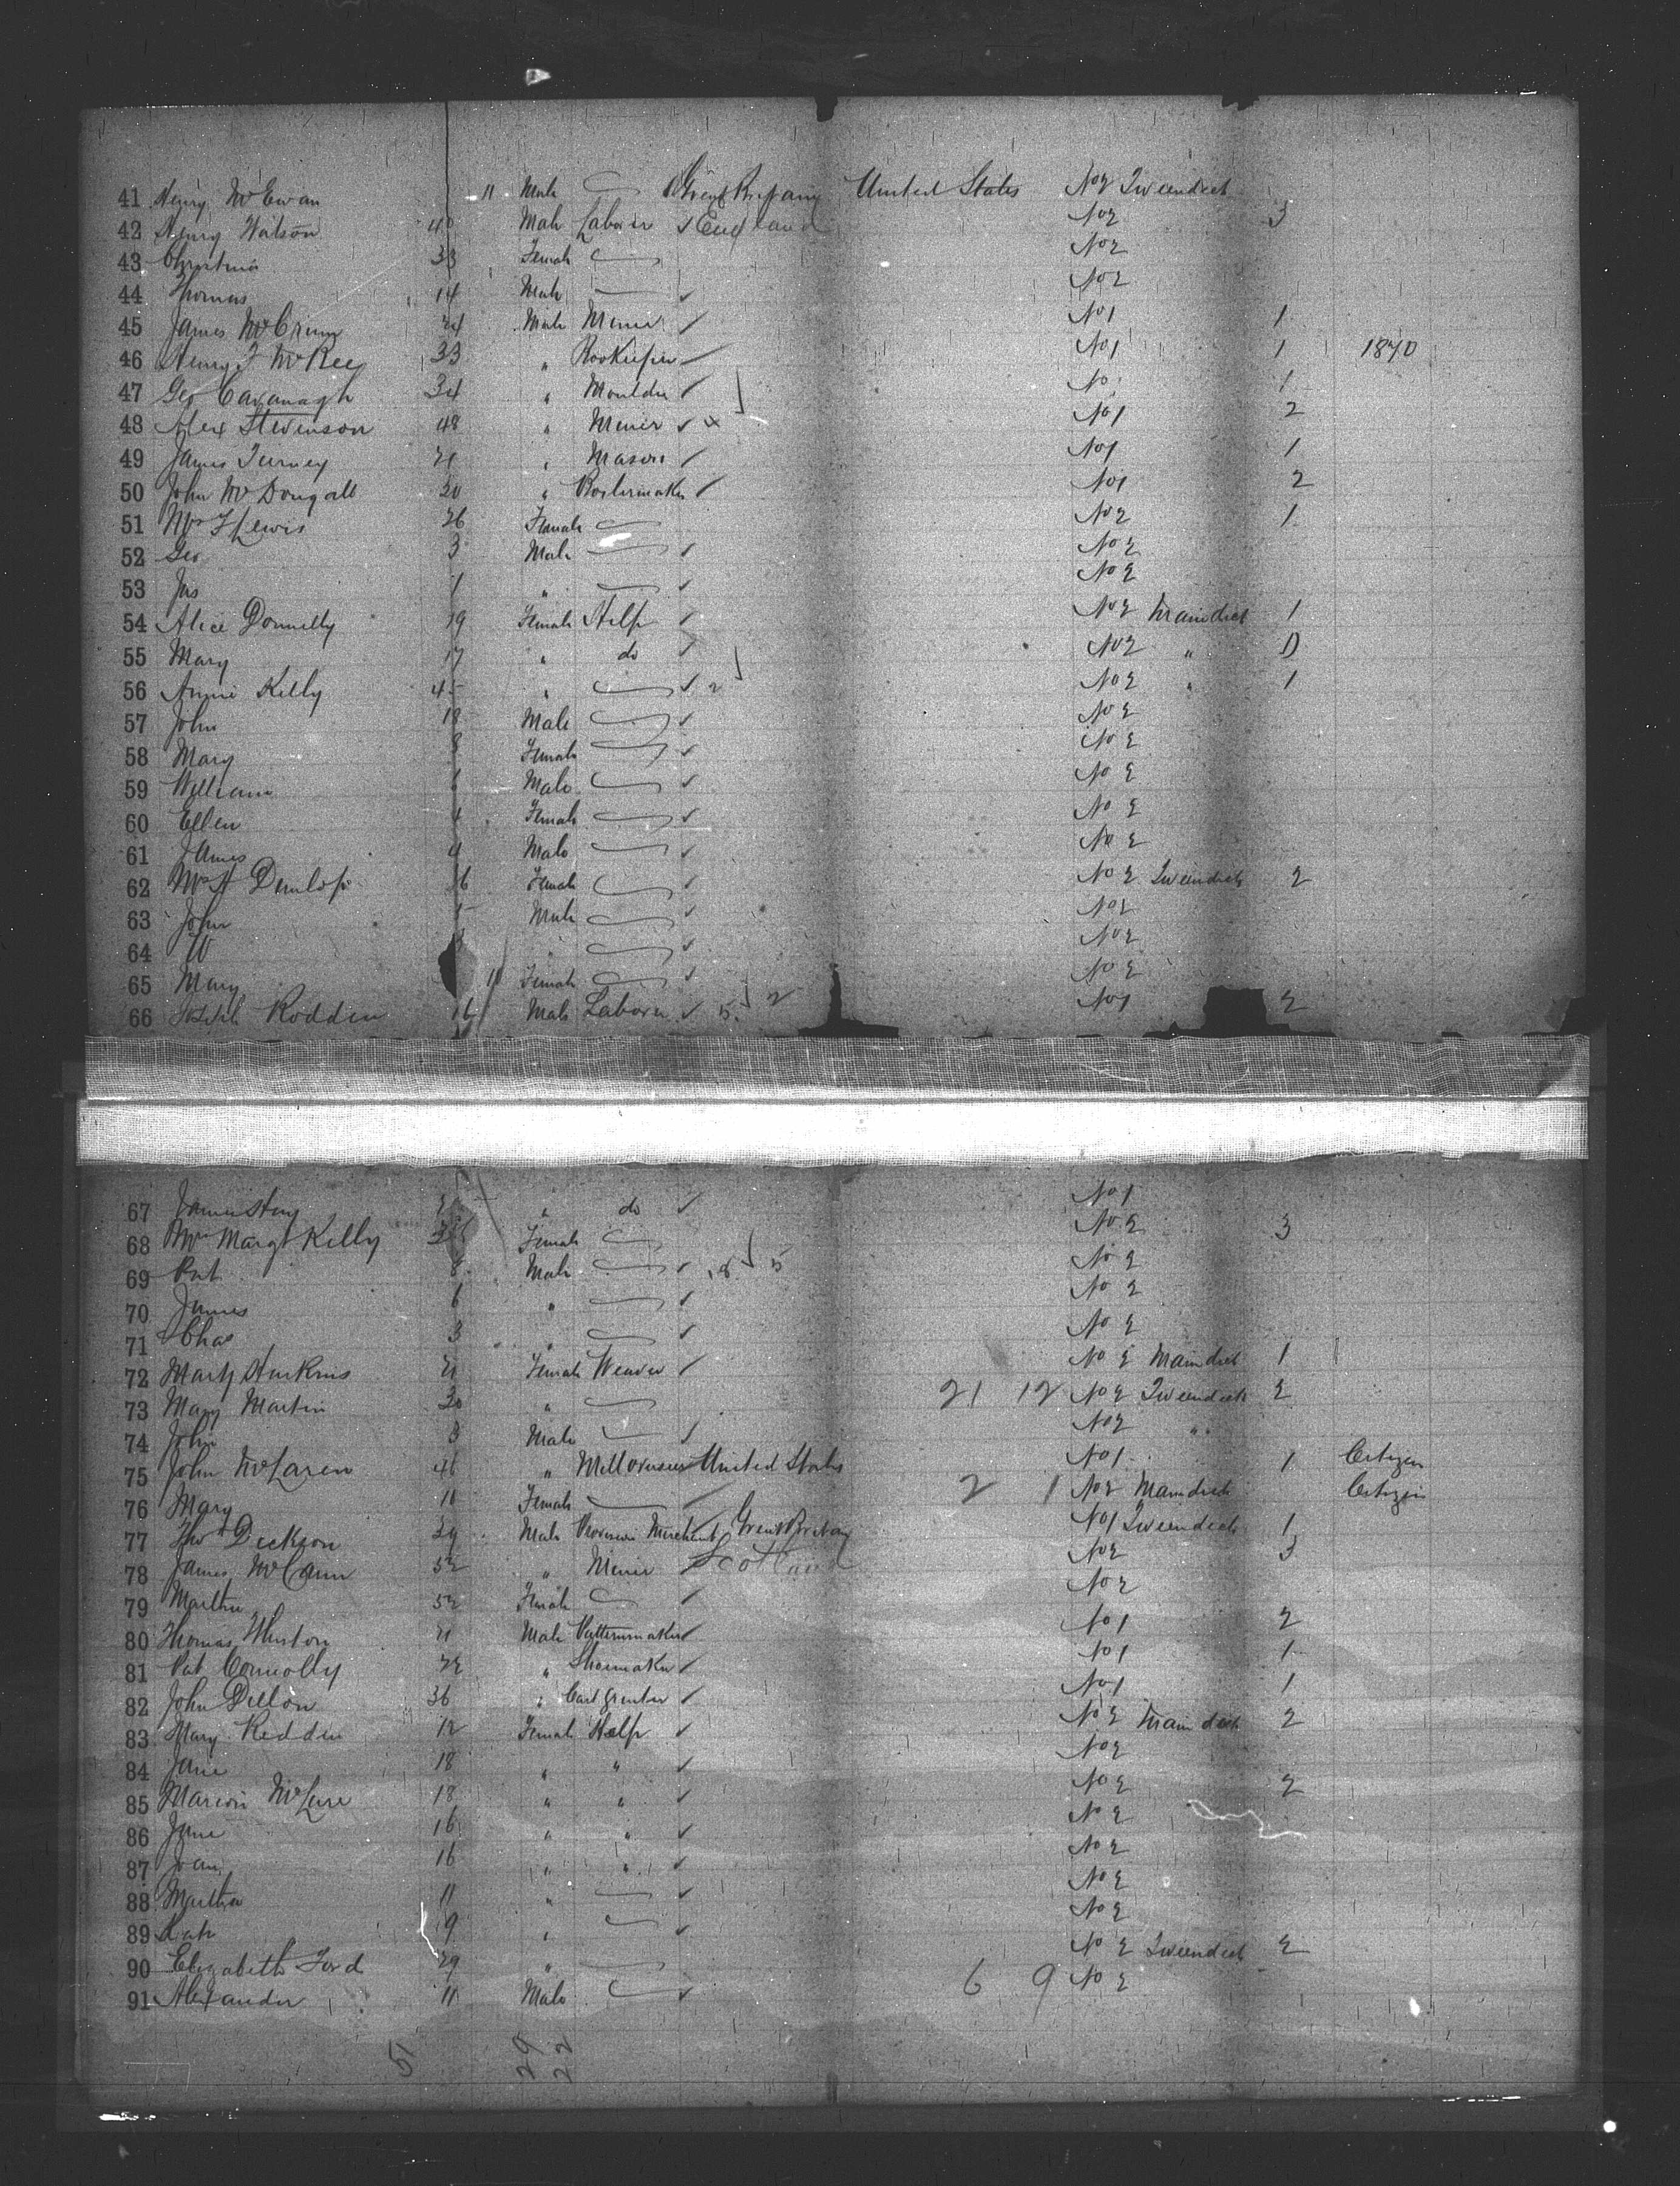 41 Henry McEwan 11 Male Great Brittany United States No 2 Tweendeck
42 Henry Watson 40 Male Laborer England No 2 3
43 Christina 33 Female No 2
44 Thomas 14 Male No 2
45 James McCrum 24 Male Miner No 1 1
46 Henry F McKee 33 " Bookeeper No 1 1 1870
47 Geo Cavanagh 34 " Moulder No 1
48 Alex Stevenson 48 " Miner No 1 2
49 James Turney 21 " Mason No 1 1
50 John McDougall 30 " Boilermaker No 1 2
51 Mrs Lewis 26 Female No 2 1
52 Geo 3 Male No 2
53 Jas 1 " No 2
54 Alice Donnelly 19 Female Help No 2 Maindeck 1
55 Mary 17 " do No 2 "
56 Annie Kelly 45 " 2 No 2 " 1
57 John 18 Male No 2
58 Mary 8 Female No 2
59 William 6 Male No 2
60 Ellen 4 Female No 2
61 James Male No 2
62 Mrs Dunlop Female No 2 Tweendeck 2
63 John Male No 2
64 W " No 2
65 Mary 11 Female No 2
66 Rodden 16 Male Laborer 5 2 No 1 2
67 " do No 1
68 Mrs Margt Kelly Female No 2 3
69 Pat 8 Male 8 5 No 2
70 James 6 " No 2
71 Chas 3 " No 2
72 Mary Harkins 21 Female Weaver No 2 Maindeck 1
73 Mary Martin 30 " 21 12 No 2 Tweendeck 2
74 John 3 Male No 2 "
75 John McLaren 46 " United States No 1 1 Citizen
76 Mary Female 2 1 No 2 Maindeck Citizen
77 Thos Dickson 39 Male Merchant Great Brittany No 1 Tweendeck 1
78 James McCann 52 " Miner Scotland No 2 3
79 Martha 52 Female No 2
80 Thomas Huston 21 Male Patternmaker No 1 2
81 Pat Connolly 22 " Shoemaker No 1 1
82 John Dillon 36 " Carpenter No 1 1
83 Mary Reddin 12 Female Help No 2 Main deck 2
84 Jane 18 " " No 2
85 Marion McLure 18 " " No 2 2
86 Jane 16 " " No 2
87 Joan 16 " " No 2
88 Martha 11 " No 2
89 Kate 9 " No 2
90 Elizabeth Ford 29 " No 2 Tweendeck 2
91 Alexander 11 Male 6 9 No 2
51 29
22